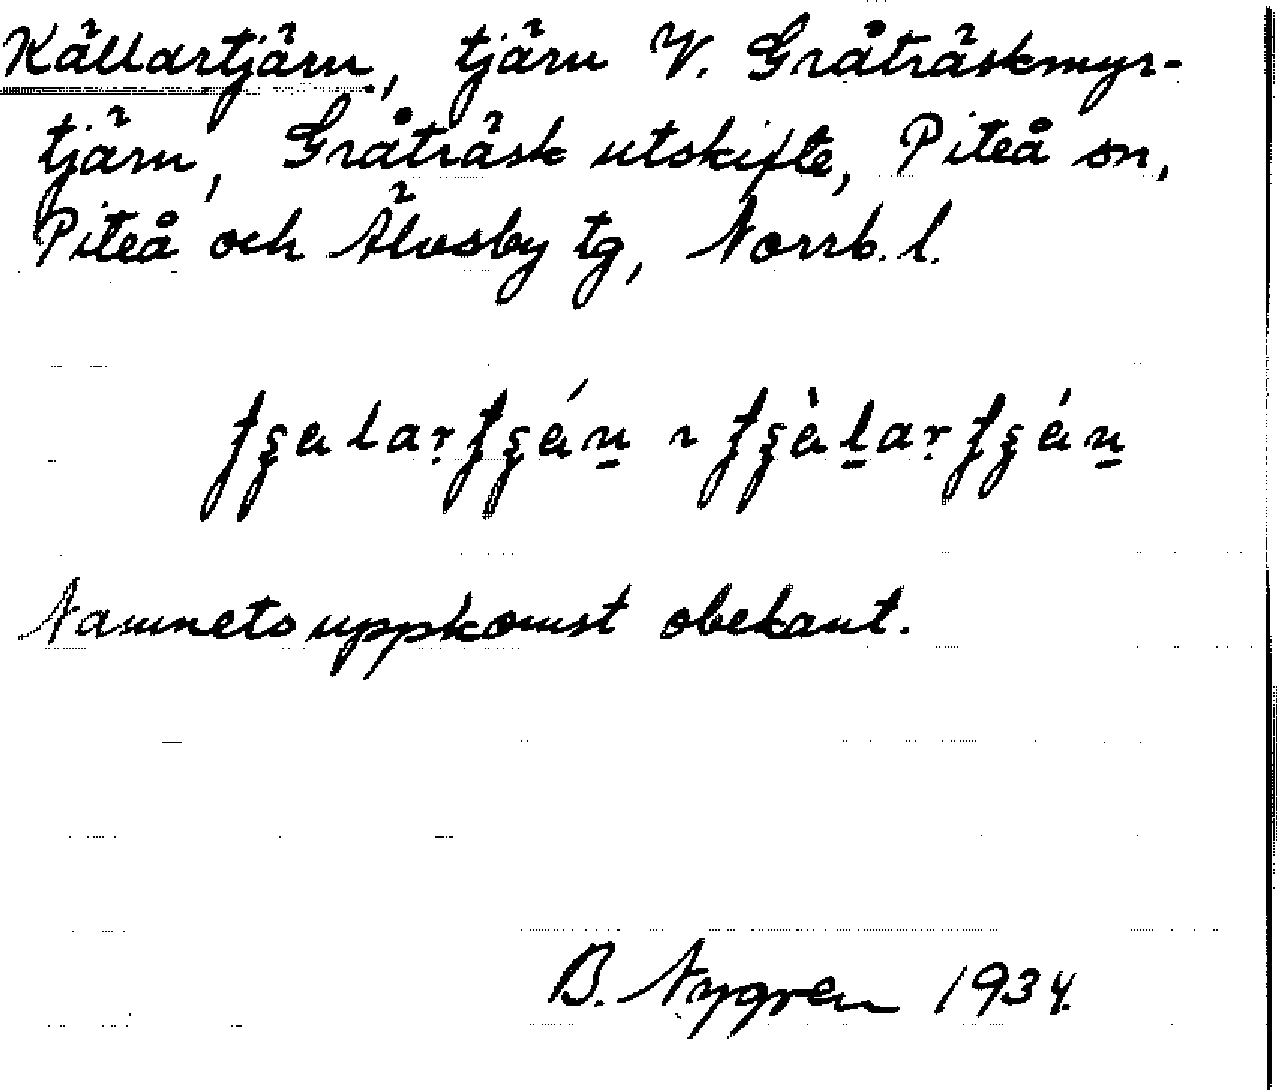 Källartjärn, tjärn V. Gråträskmyr-
tjärn, Gråträsk utskifte, Piteå sn,
Piteå och Älvsby tg, Norrb. l.
Namnets uppkomst obekant.
B. Nygren 1934.